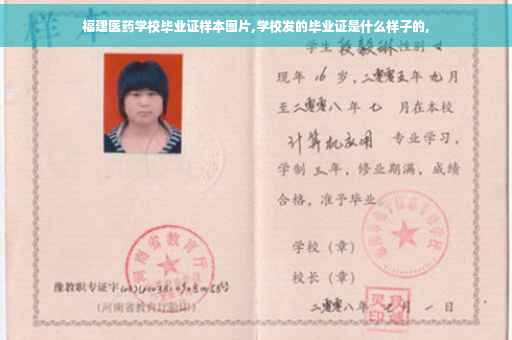 福建医药学校毕业证样本图片,学校发的毕业证是什么样子的,
样本
学生 段毅琳 性别 女
现年 16 岁,二零零五年 九月
至二零零八年 七 月在本校
计算机应用 专业学习,
学制 三年,修业期满,成绩
合格,准予毕业
学校(章)
校长(章)
二零零八年 月 一 日
河南省教育厅
豫教职专证字
(河南省教育厅验印)